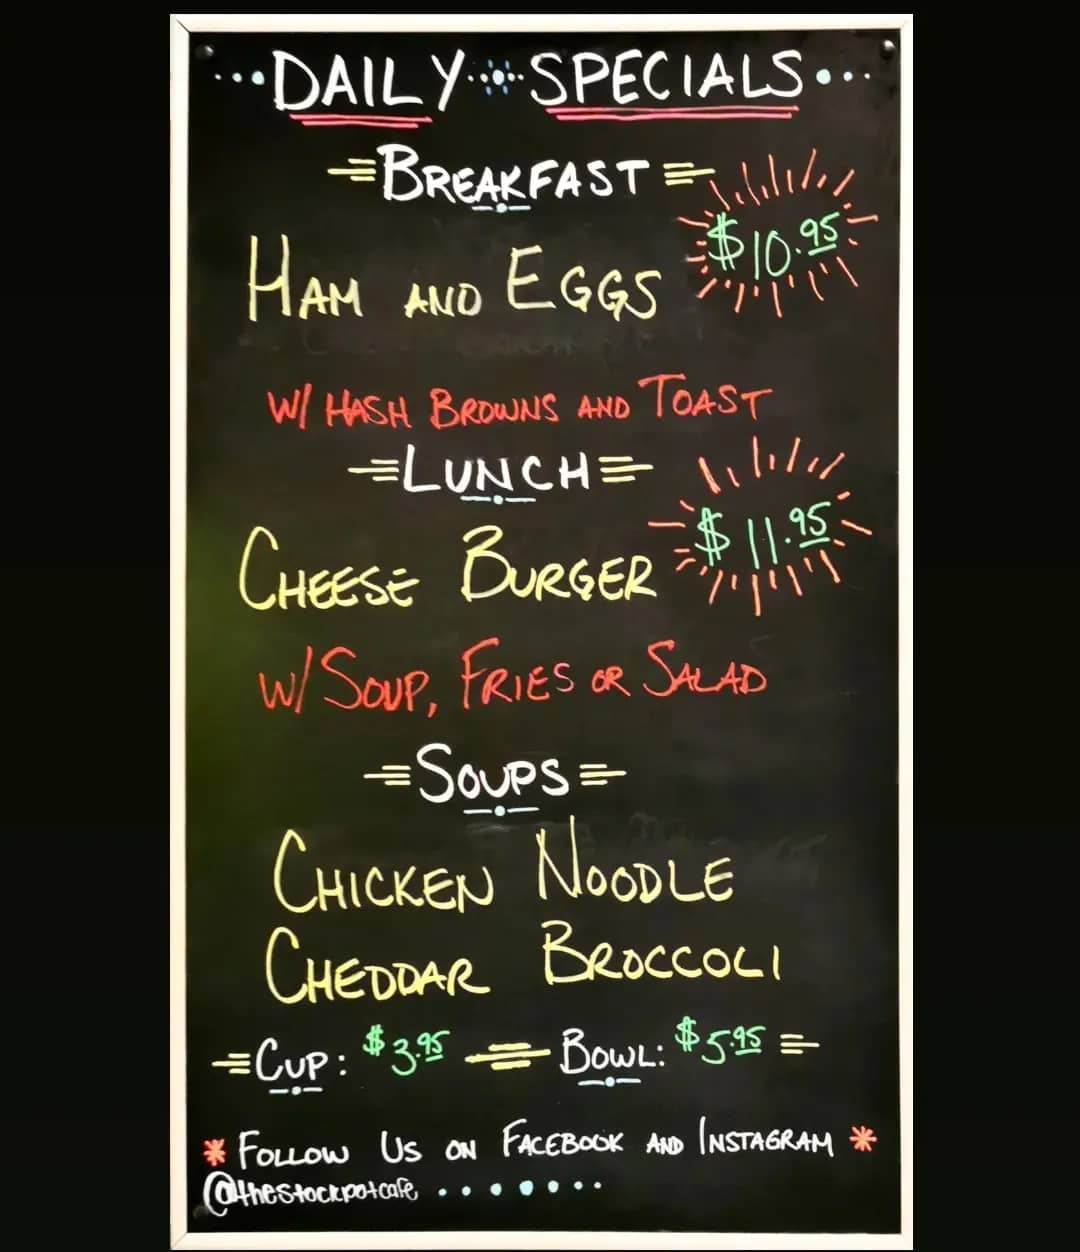 DAILY SPECIALS
BREAKFAST
HAM AND EGGS $10.95
W/ HASH BROWNS AND TOAST
LUNCH
CHEESE BURGER $11.95
W/ SOUP, FRIES OR SALAD
SOUPS
CHICKEN NOODLE
CHEDDAR BROCCOLI
CUP: $3.95 BOWL: $5.95
* FOLLOW US ON FACEBOOK AND INSTAGRAM *
@thestockpotcafe